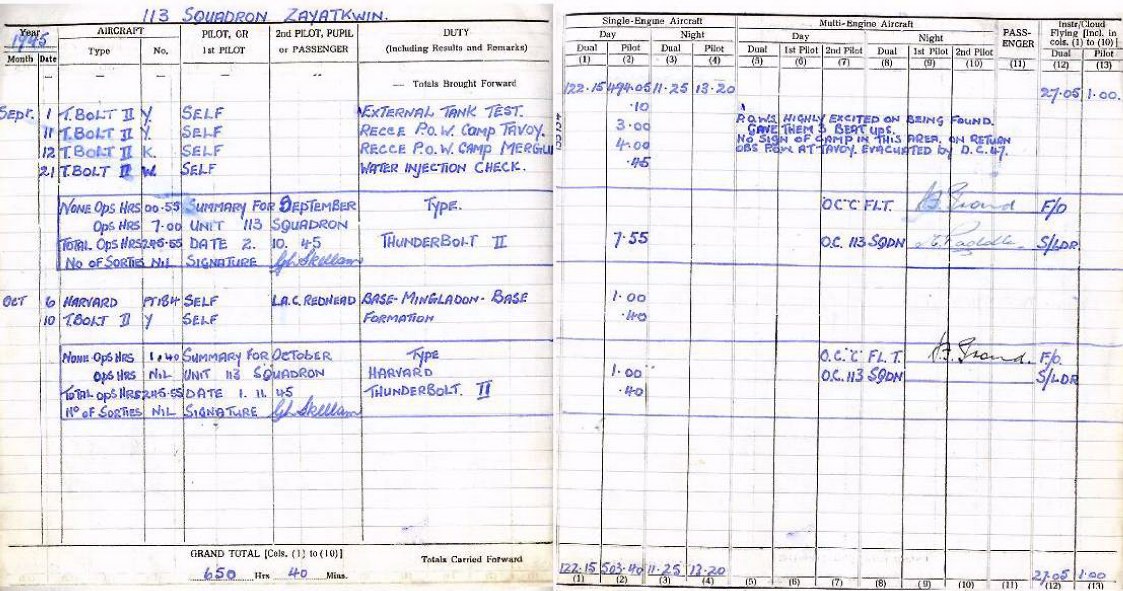 113 SQUADRON ZAYATKWIN.
Year 1945 AIRCRAFT PILOT, OR 2ND PILOT, PUPIL DUTY
Month Date Type No. 1ST PILOT or PASSENGER (Including Results and Remarks)
— — — — — Totals Brought Forward
SEPT. 1 T.BOLT II Y. SELF EXTERNAL TANK TEST.
11 T.BOLT II Y. SELF RECCE P.O.W. CAMP TAVOY.
12 T.BOLT II K. SELF RECCE P.O.W CAMP MERGUI
21 T.BOLT II W. SELF WATER INJECTION CHECK.
NONE OPS HRS 00.55 SUMMARY FOR SEPTEMBER TYPE.
OPS HRS 7.00 UNIT 113 SQUADRON
TOTAL OPS HRS 245-55 DATE 2. 10. 45 THUNDERBOLT II
NO OF SORTIES NIL SIGNATURE GH Skellam
OCT 6 HARVARD FT184 SELF L.A.C. REDHEAD BASE-MINGLADON-BASE
10 T.BOLT II Y SELF FORMATION
NONE OPS HRS 1.40 SUMMARY FOR OCTOBER TYPE
OPS HRS NIL UNIT 113 SQUADRON HARVARD
TOTAL OPS HRS 245-55 DATE 1. 11. 45 THUNDERBOLT. II
NO OF SORTIES NIL SIGNATURE GH Skellam
GRAND TOTAL [Cols. (1) to (10)] Totals Carried Forward
650 Hrs. 40 Mins.
Single-Engine Aircraft Multi-Engine Aircraft PASSENGER Instr/Cloud Flying [Incl. in cols. (1) to (10)]
Day Night Day Night
Dual Pilot Dual Pilot Dual 1st Pilot 2nd Pilot Dual 1st Pilot 2nd Pilot Dual Pilot
(1) (2) (3) (4) (5) (6) (7) (8) (9) (10) (11) (12) (13)
122.15 494.05 11.25 13.20 27.05 1.00.
.10
3.00 P.O.W'S HIGHLY EXCITED ON BEING FOUND.
GAVE THEM 3 BEAT UPS.
4.00 NO SIGN OF CAMP IN THIS AREA, ON RETURN
OBS P.O.W AT TAVOY. EVACUATED by D.C.47.
.45
O.C "C" FLT. F/O
7.55 O.C. 113 SQDN S/LDR
1.00
.40
O.C. "C" FLT. F/O
1.00 O.C. 113 SQDN S/LDR
.40
122.15 503.40 11.25 13.20 27.05 1.00
(1) (2) (3) (4) (5) (6) (7) (8) (9) (10) (11) (12) (13)